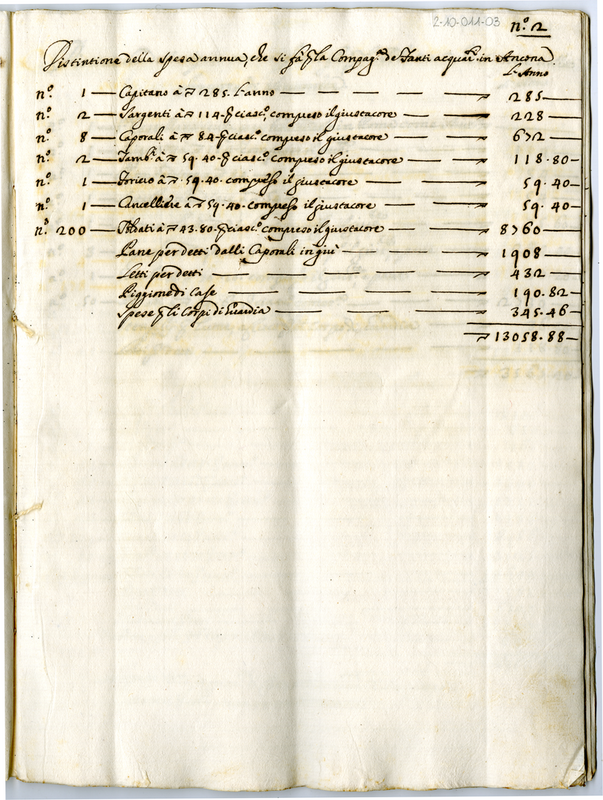 2-10-011-03
nº. 2
Distintione della spesa annua, che si fà p la Compag.ª de Fanti acquar.ti in Ancona
L'Anno
nº. 1 — Capitano à 285. l'anno — 285 —
nº. 2 — Sargenti à 114 - p ciasc.º compreso il giustacore — 228 —
nº. 8 — Caporali à 84 - p ciasc.º compreso il giustacore — 672 —
nº. 2 — Tamb.i à 59.40 - p ciasc.º compreso il giustacore — 118.80 —
nº. 1 — Foriero à 59.40 - compreso il giustacore — 59.40 —
nº. 1 — Cancelliere à 59.40 - compreso il giustacore — 59.40 —
n.i 200 — Soldati à 43.80 - p ciasc.º compreso il giustacore — 8760 —
Pane per detti dalli Caporali in giù — 1908 —
Letti per detti — 432 —
Piggione di Case — 190.82 —
Spese p li Corpi di Guardia — 345.46 —
13058.88 —